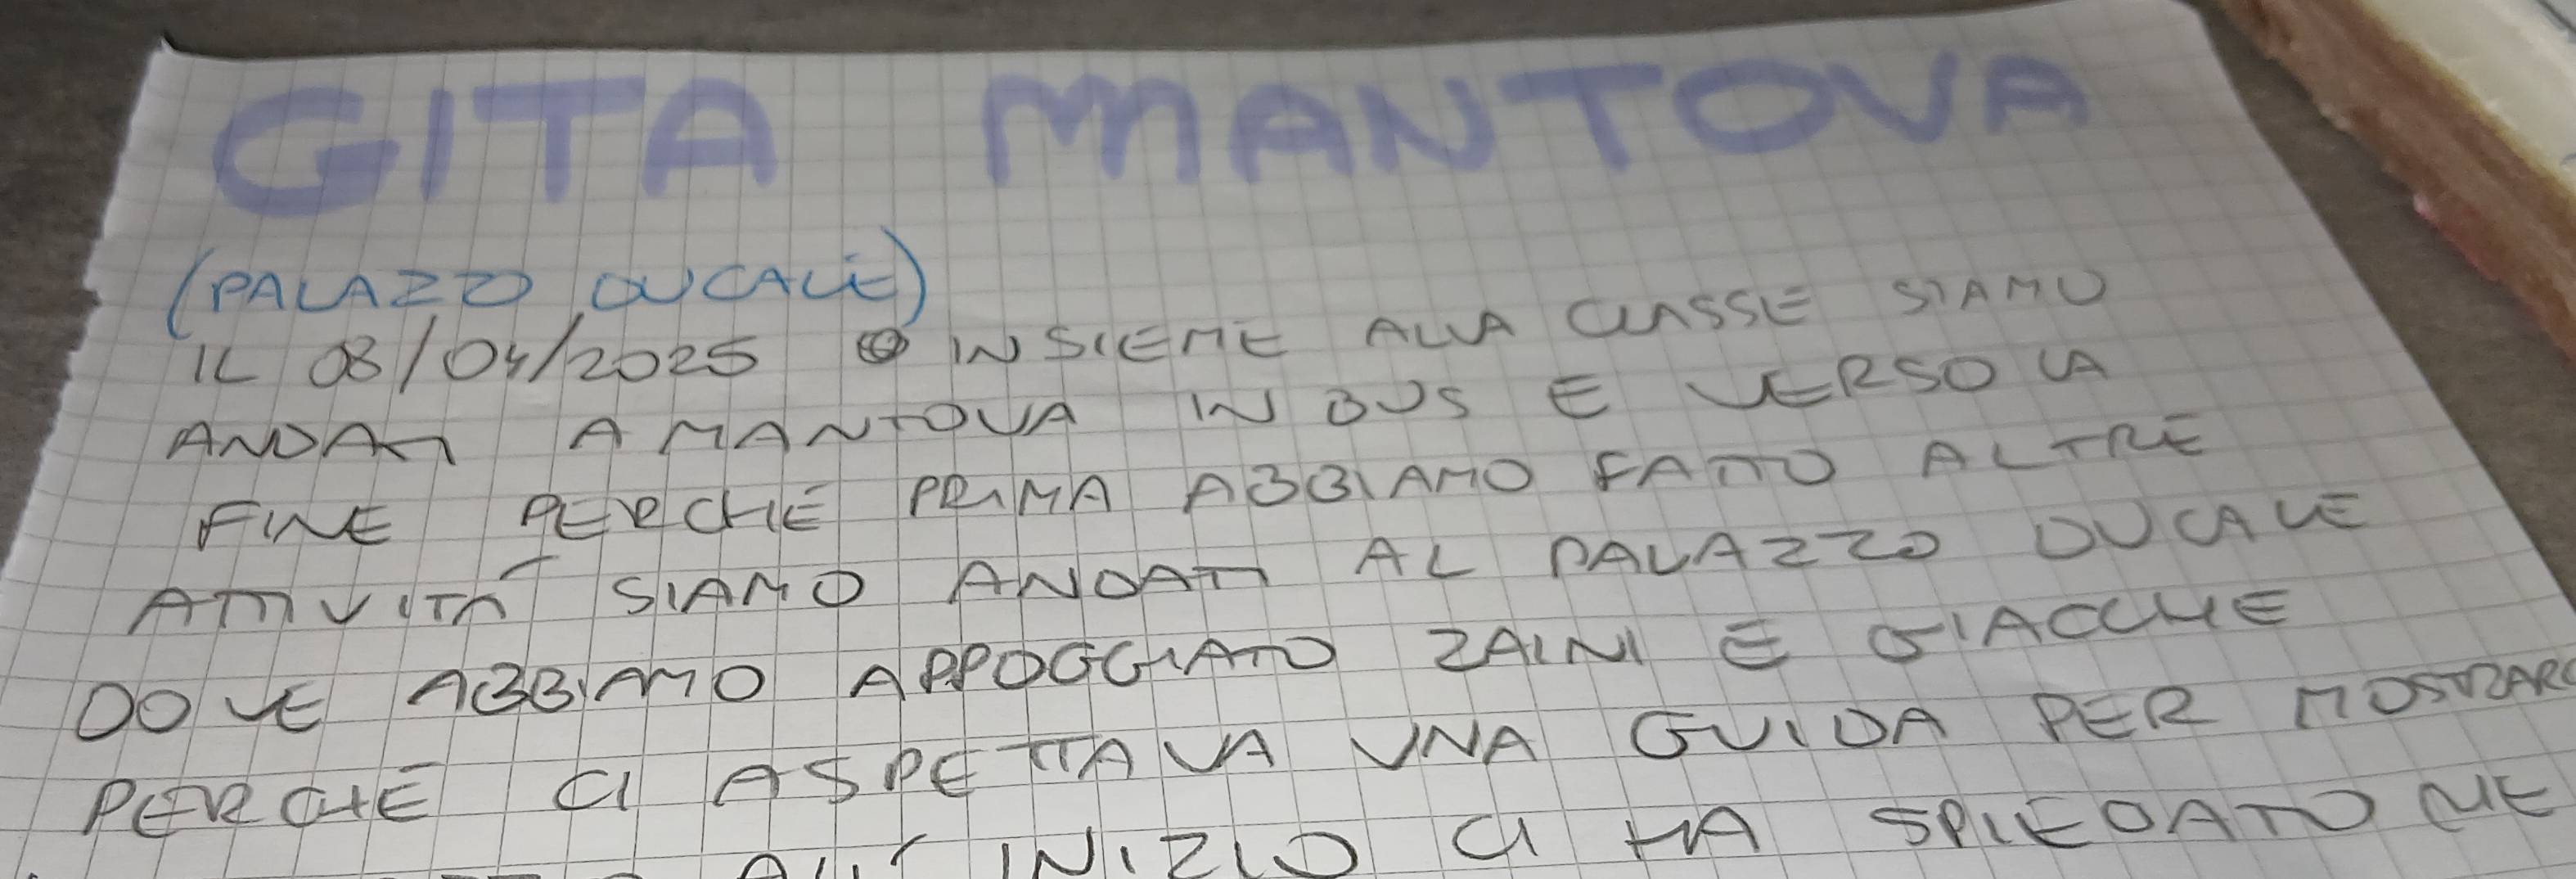 GITA MANTOVA
(PALAZZO DUCALE)
IL 08/04/2025 INSIEME ALLA CLASSE SIAMO
ANDATI A MANTOVA IN BUS E VERSO LA
FINE PERCHÉ PRIMA ABBIAMO FATTO ALTRE
ATTIVITÀ SIAMO ANDATI AL PALAZZO DUCALE
DOVE ABBIAMO APPOGGIATO ZAINI E GIACCHE
PERCHÉ CI ASPETTAVA UNA GUIDA PER MOSTRARC
ALL' INIZIO CI HA SPIEGATO CHE